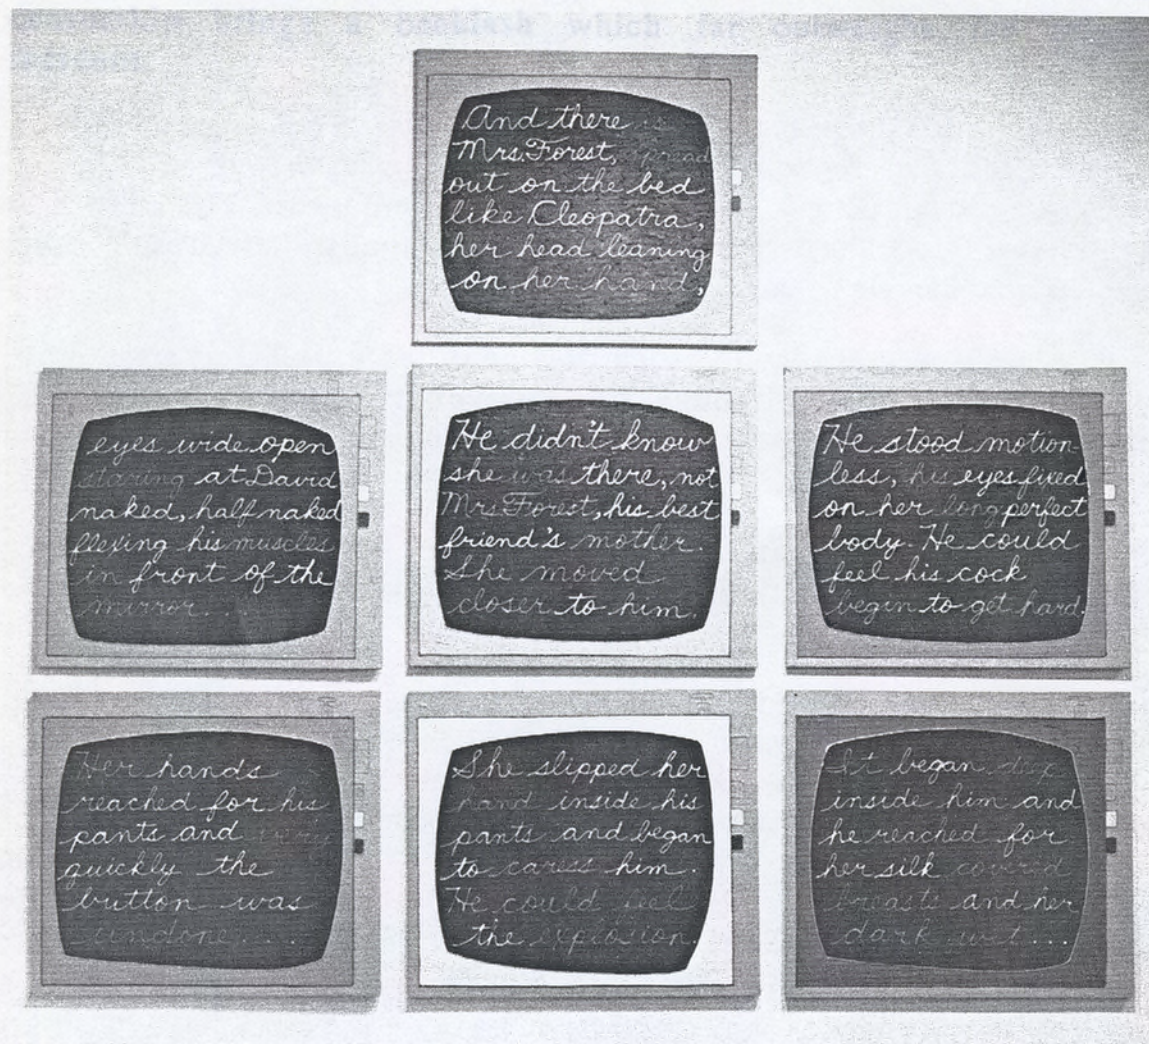 And there is
Mrs. Forest, spread
out on the bed
like Cleopatra,
her head leaning
on her hand,
eyes wide open
staring at David
naked, half naked
flexing his muscles
in front of the
mirror.
He didn't know
she was there, not
Mrs. Forest, his best
friend's mother.
She moved
closer to him.
He stood motion-
less, his eyes fixed
on her long perfect
body. He could
feel his cock
begin to get hard.
Her hands
reached for his
pants and very
quickly the
button was
undone....
She slipped her
hand inside his
pants and began
to caress him.
He could feel
the explosion.
It began deep
inside him and
he reached for
her silk covered
breasts and her
dark wet...